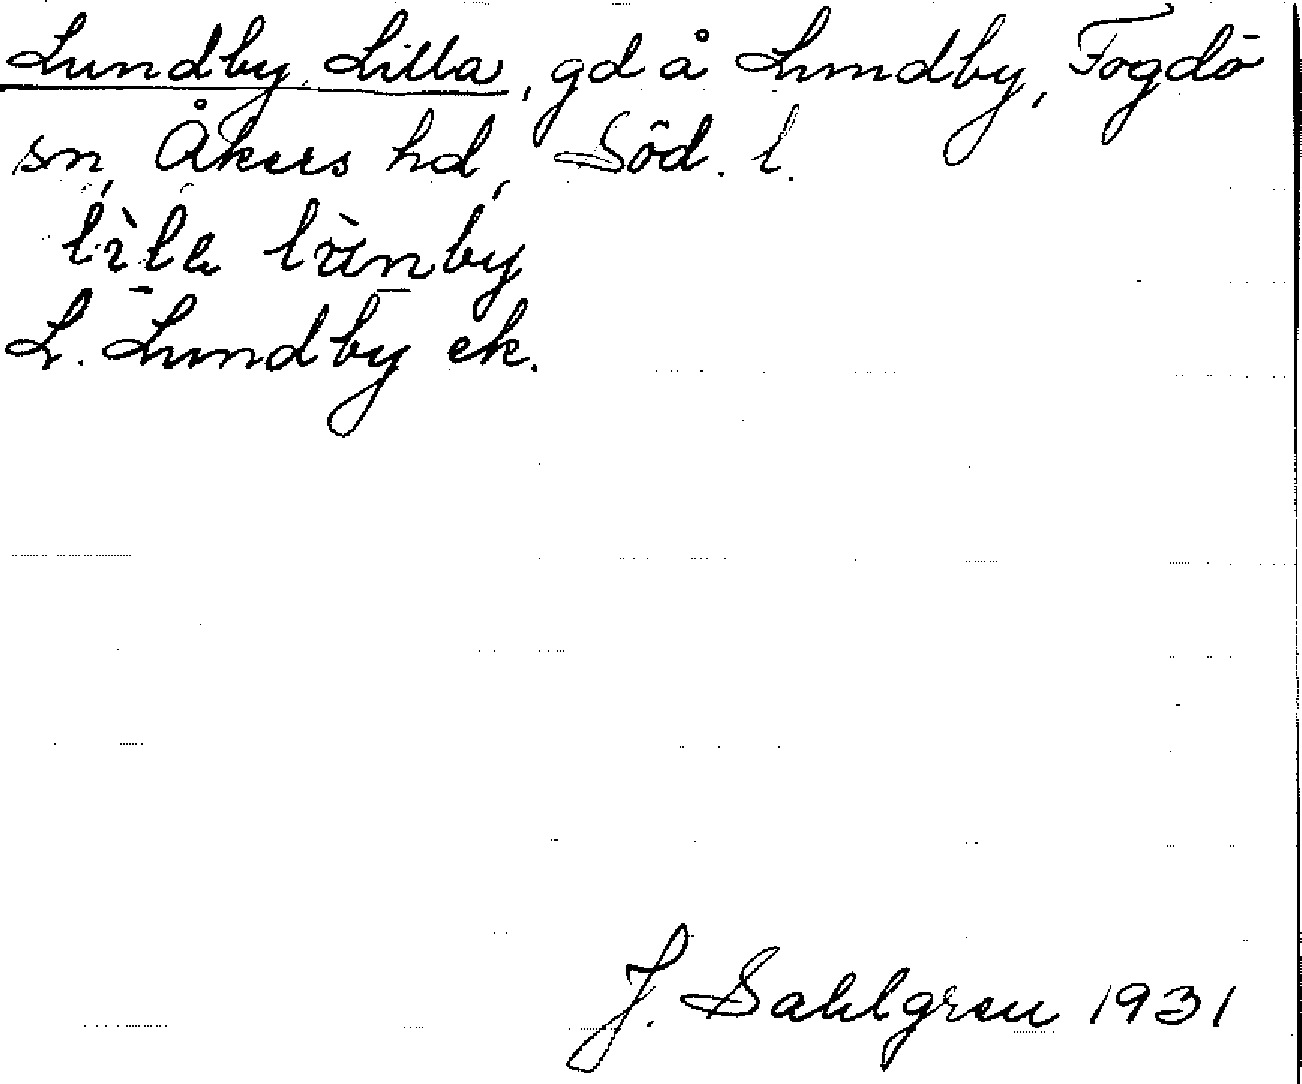 Lundby, Lilla, gd å Lundby, Fogdö
sn, Åkers hd, Söd. l.
lìla lùnby
L. Lundby ek.
J. Sahlgren 1931